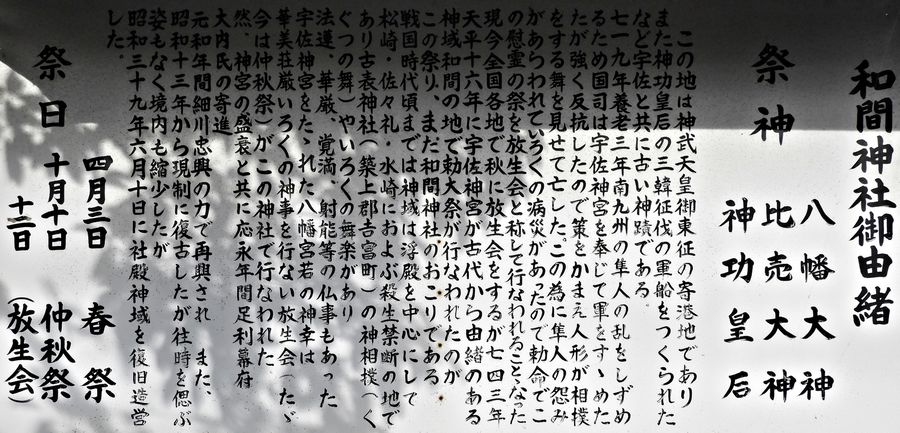 和間神社御由緒
祭神
八幡大神
比売大神
神功皇后
この地は神武天皇御東征の寄港地であり
また神功皇后の三韓征伐の軍船をつくられた
など宇佐と共に古い神蹟である。
七一九年養老三年南九州の隼人の乱をしずめ
るため国司は宇佐神宮を奉じて軍をすゝめた
たが強く反抗したので策をかまえ人形が相撲
をする舞を見せて亡した。この為に隼人の怨み
があらわれていろくの病災があったので勅命でこ
の慰霊の祭を放生会と称して行なわれることゝなった
現今全国各地で秋に放生会をするが七四三年
天平十六年に宇佐神宮が古代から由緒のある
神域和間の地で勅大祭が行なわれたのが
この祭り、また和間神社のおこりである
戦国時代頃までは神域は浮殿を中心にして
松崎・佐々礼・水崎におよぶ殺生禁断の地で
あり古表神社（築上郡吉富町）の神相撲（く
ぐつの舞）やいろくの舞楽があり
法蓮、華厳、覚満、射能等の仏事もあった
宇佐神宮をたゝれた八幡宮若の神幸は
華美荘厳いろくの神事を行ない放生会（たゞ
今は仲秋祭）がこの神社で行なわれた
然、神宮の盛衰と共に応永年間足利幕府
大内氏の寄進
元和年間細川忠興の力で再興され　また、
昭和十三年から現制に復古したが往時を偲ぶ
姿もなく境内も縮少したが
昭和三十九年六月十日に社殿神域を復旧造営
した。
祭日
四月三日　春祭
十月十日　仲秋祭
十二日　（放生会）